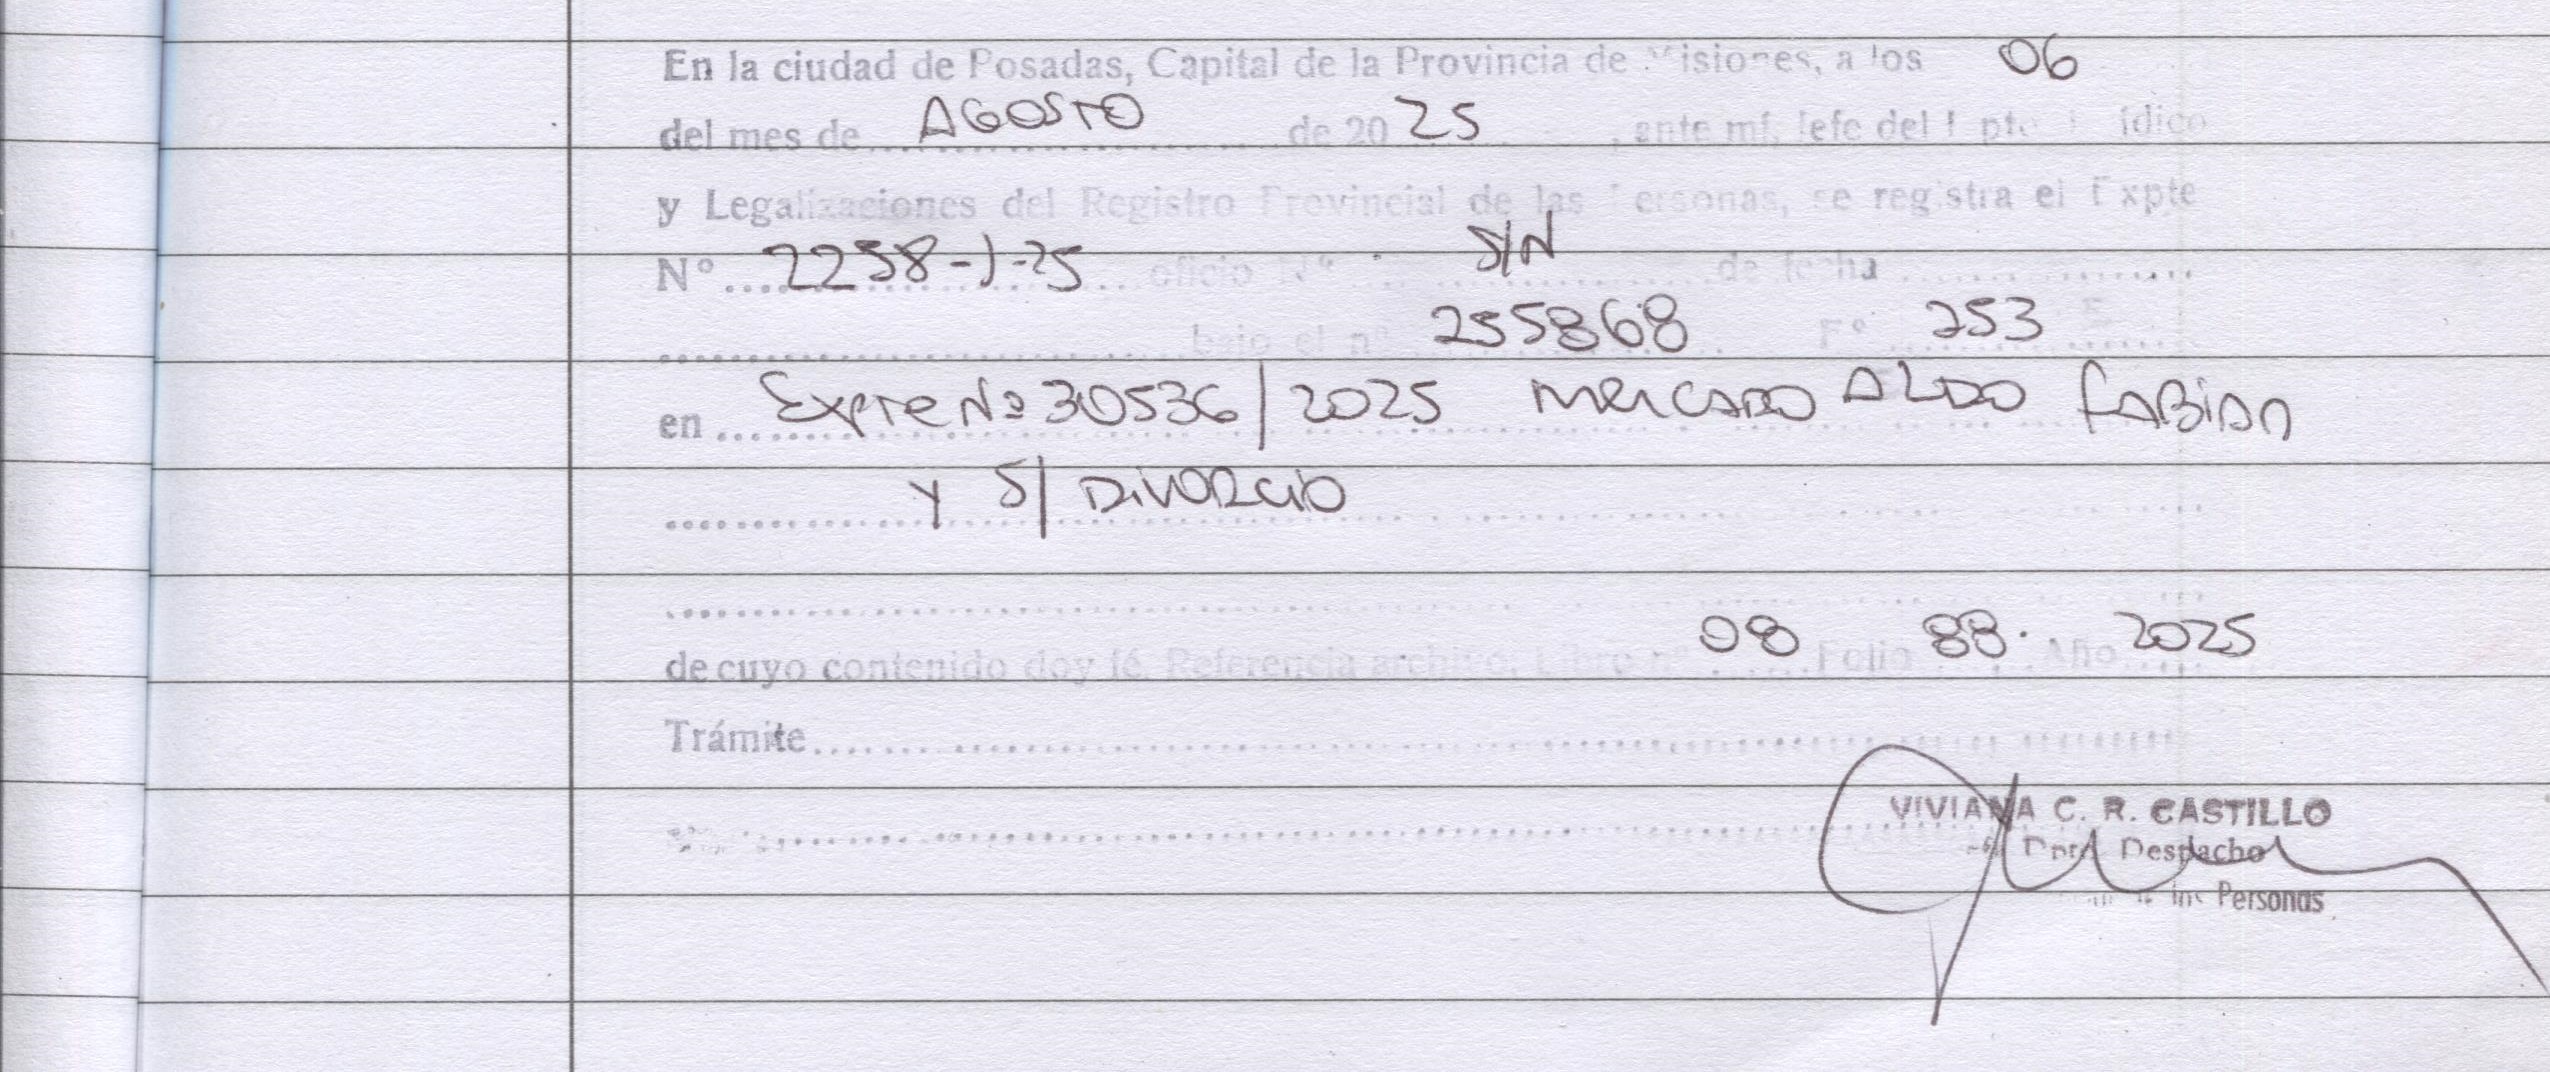 En la ciudad de Posadas, Capital de la Provincia de Misiones, a los 06
del mes de AGOSTO de 2025, ante mí, Jefe del Dpto. Jurídico
y Legalizaciones del Registro Provincial de las Personas, se registra el Expte
Nº 2258-J-25 oficio Nº S/N de fecha
bajo el nº 255868 Fº 253
en Expte Nº 30536/2025 MERCADO ALDO FABIAN
y S/ DIVORCIO
de cuyo contenido doy fé. Referencia archivo, Libro nº 08 Folio 88. Año 2025
Trámite
VIVIANA C. R. CASTILLO
Dpto Despacho
las Personas